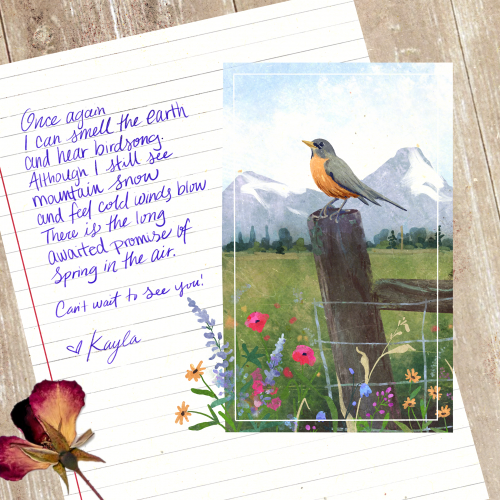 Once again
I can smell the earth
and hear birdsong.
Although I still see
mountain snow
and feel cold winds blow
There is the long
awaited promise of
Spring in the air.
Can't wait to see you!
♡ Kayla